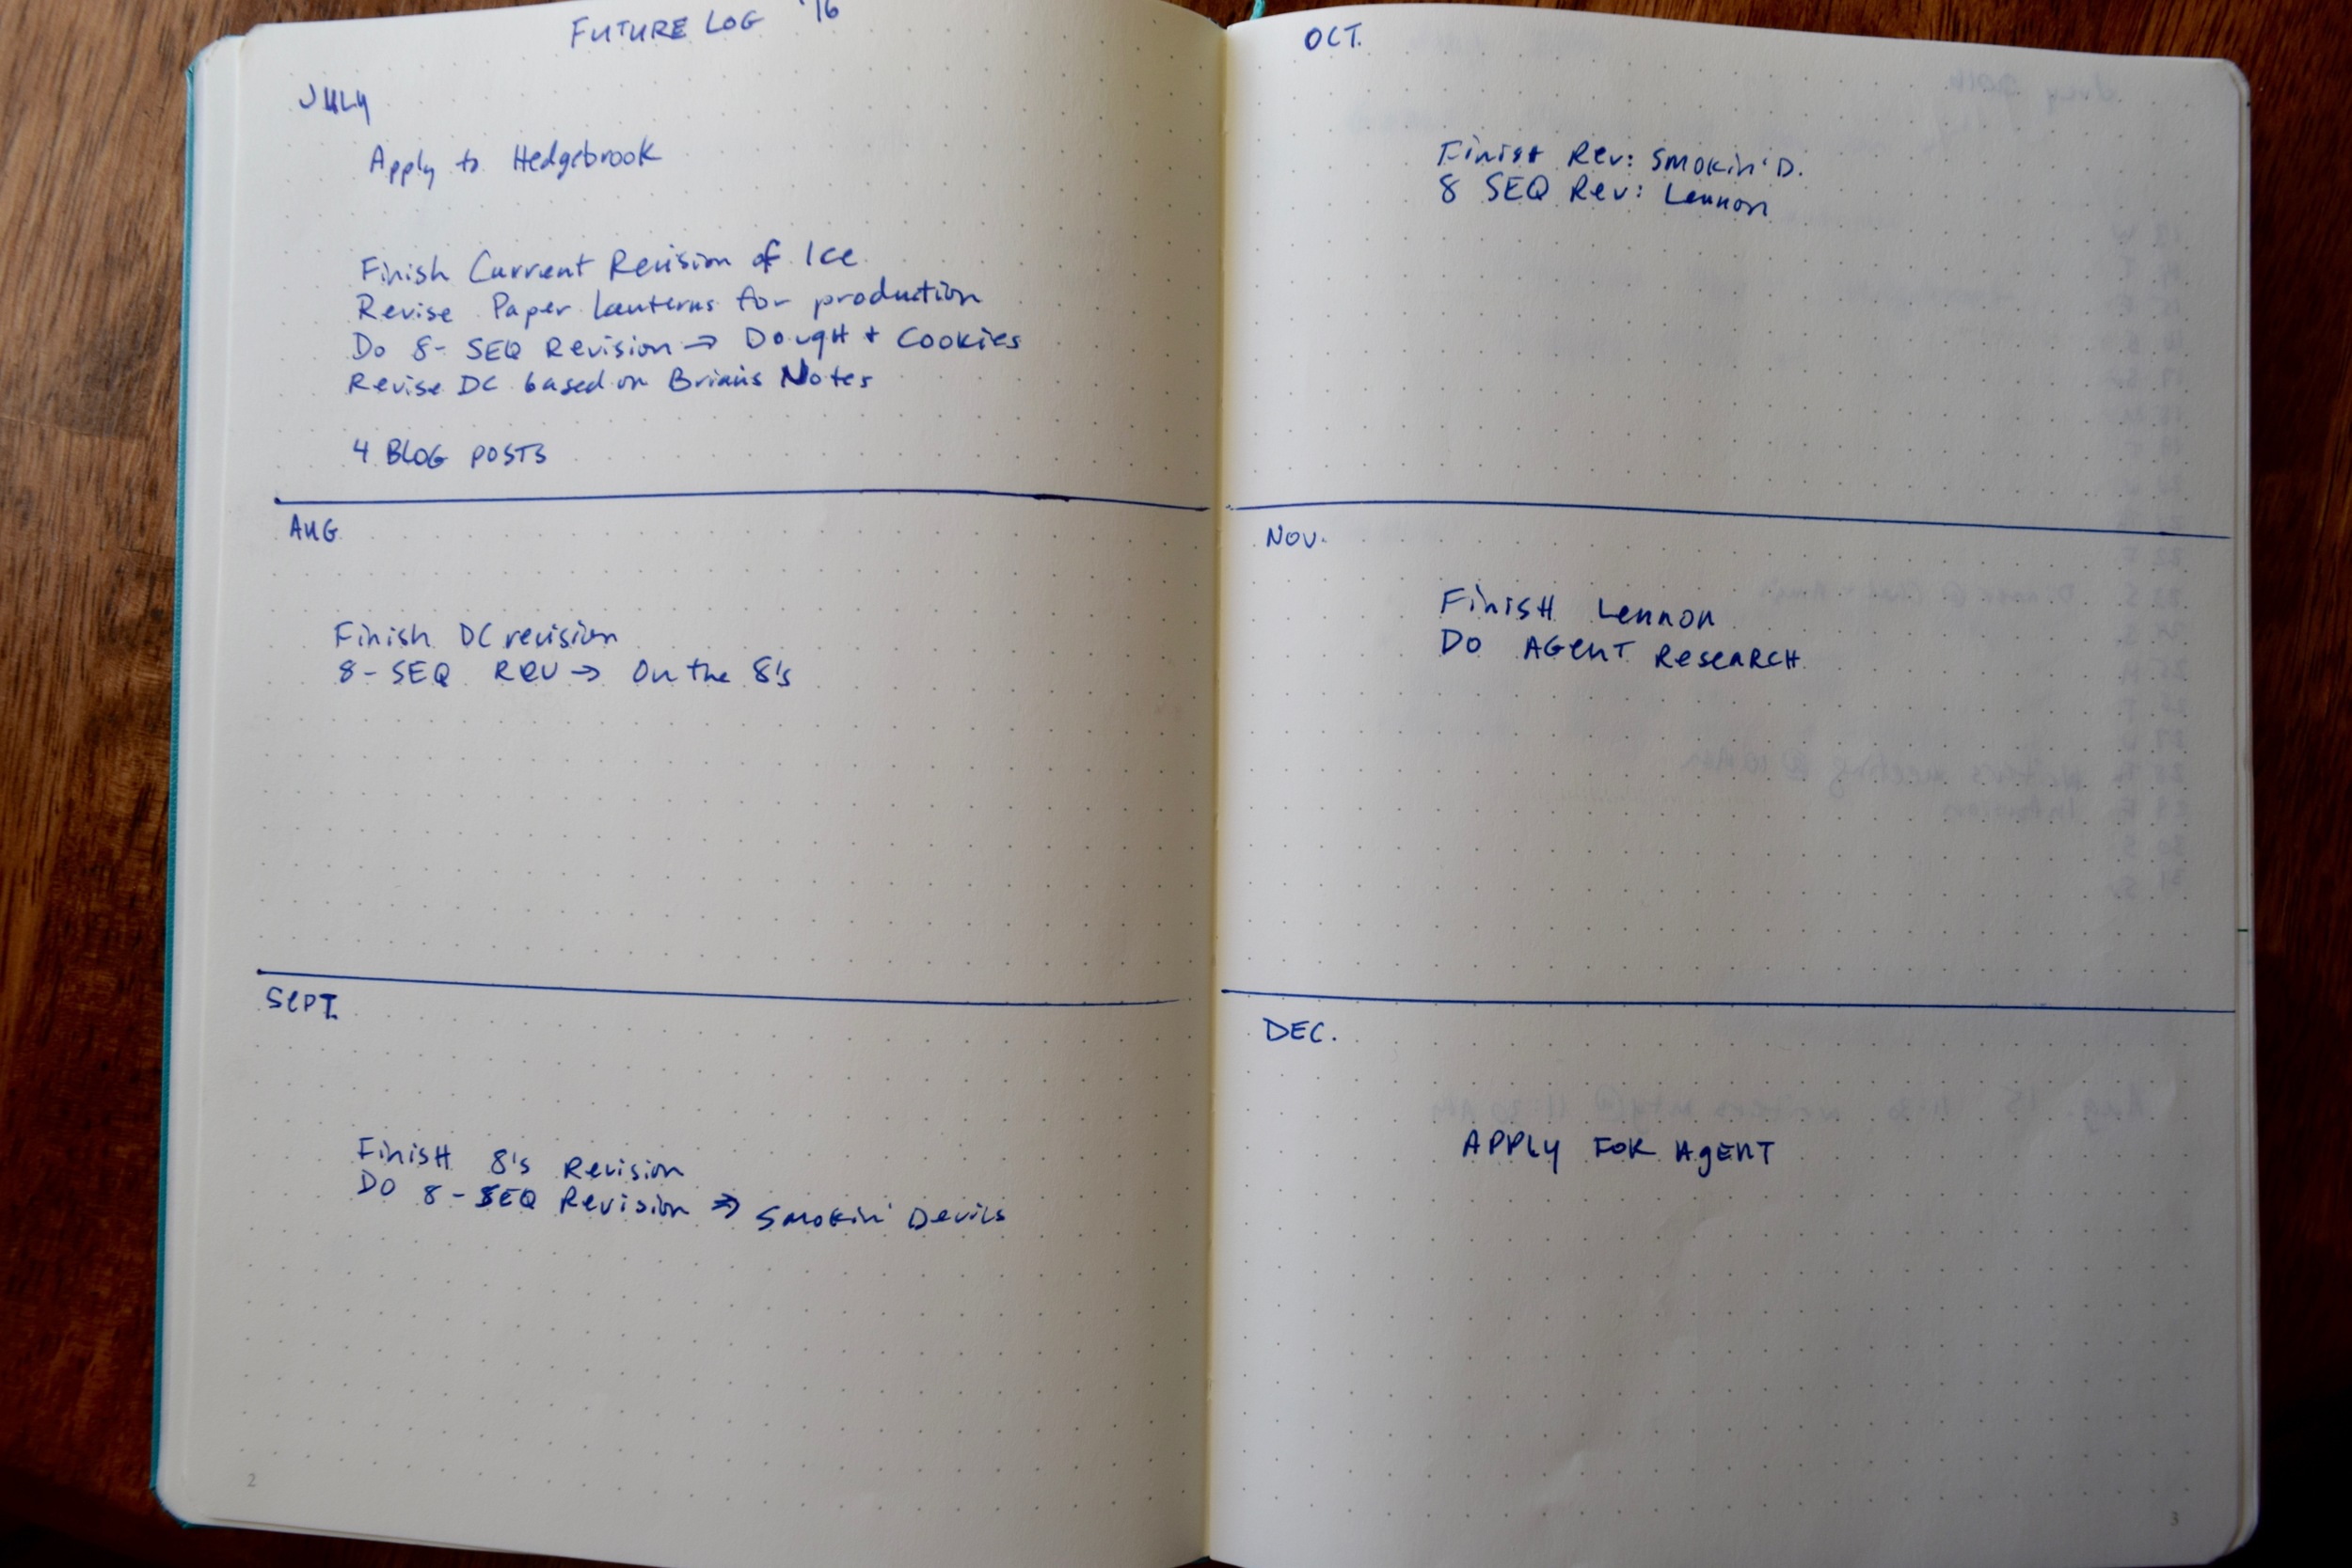 FUTURE LOG '16
JULY
Apply to Hedgebrook
Finish Current Revision of Ice
Revise Paper Lanterns for production
Do 8-SEQ Revision → Dough + Cookies
Revise DC based on Brian's Notes
4 BLOG POSTS
AUG
Finish DC revision
8-SEQ REV → On the 8's
SEPT.
Finish 8's Revision
DO 8-SEQ Revision → Smokin' Devils
2
OCT.
Finish Rev: Smokin' D.
8 SEQ Rev: Lennon
NOV.
Finish Lennon
DO AGENT RESEARCH
DEC.
APPLY FOR AGENT
3